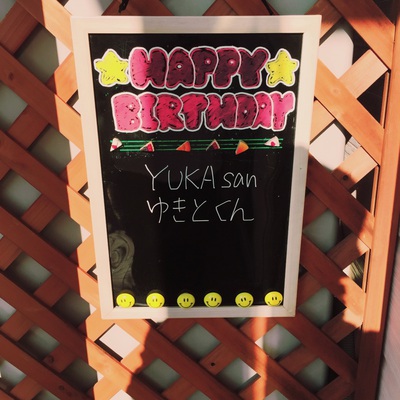 HAPPY
BIRTHDAY
YUKA san
ゆきとくん